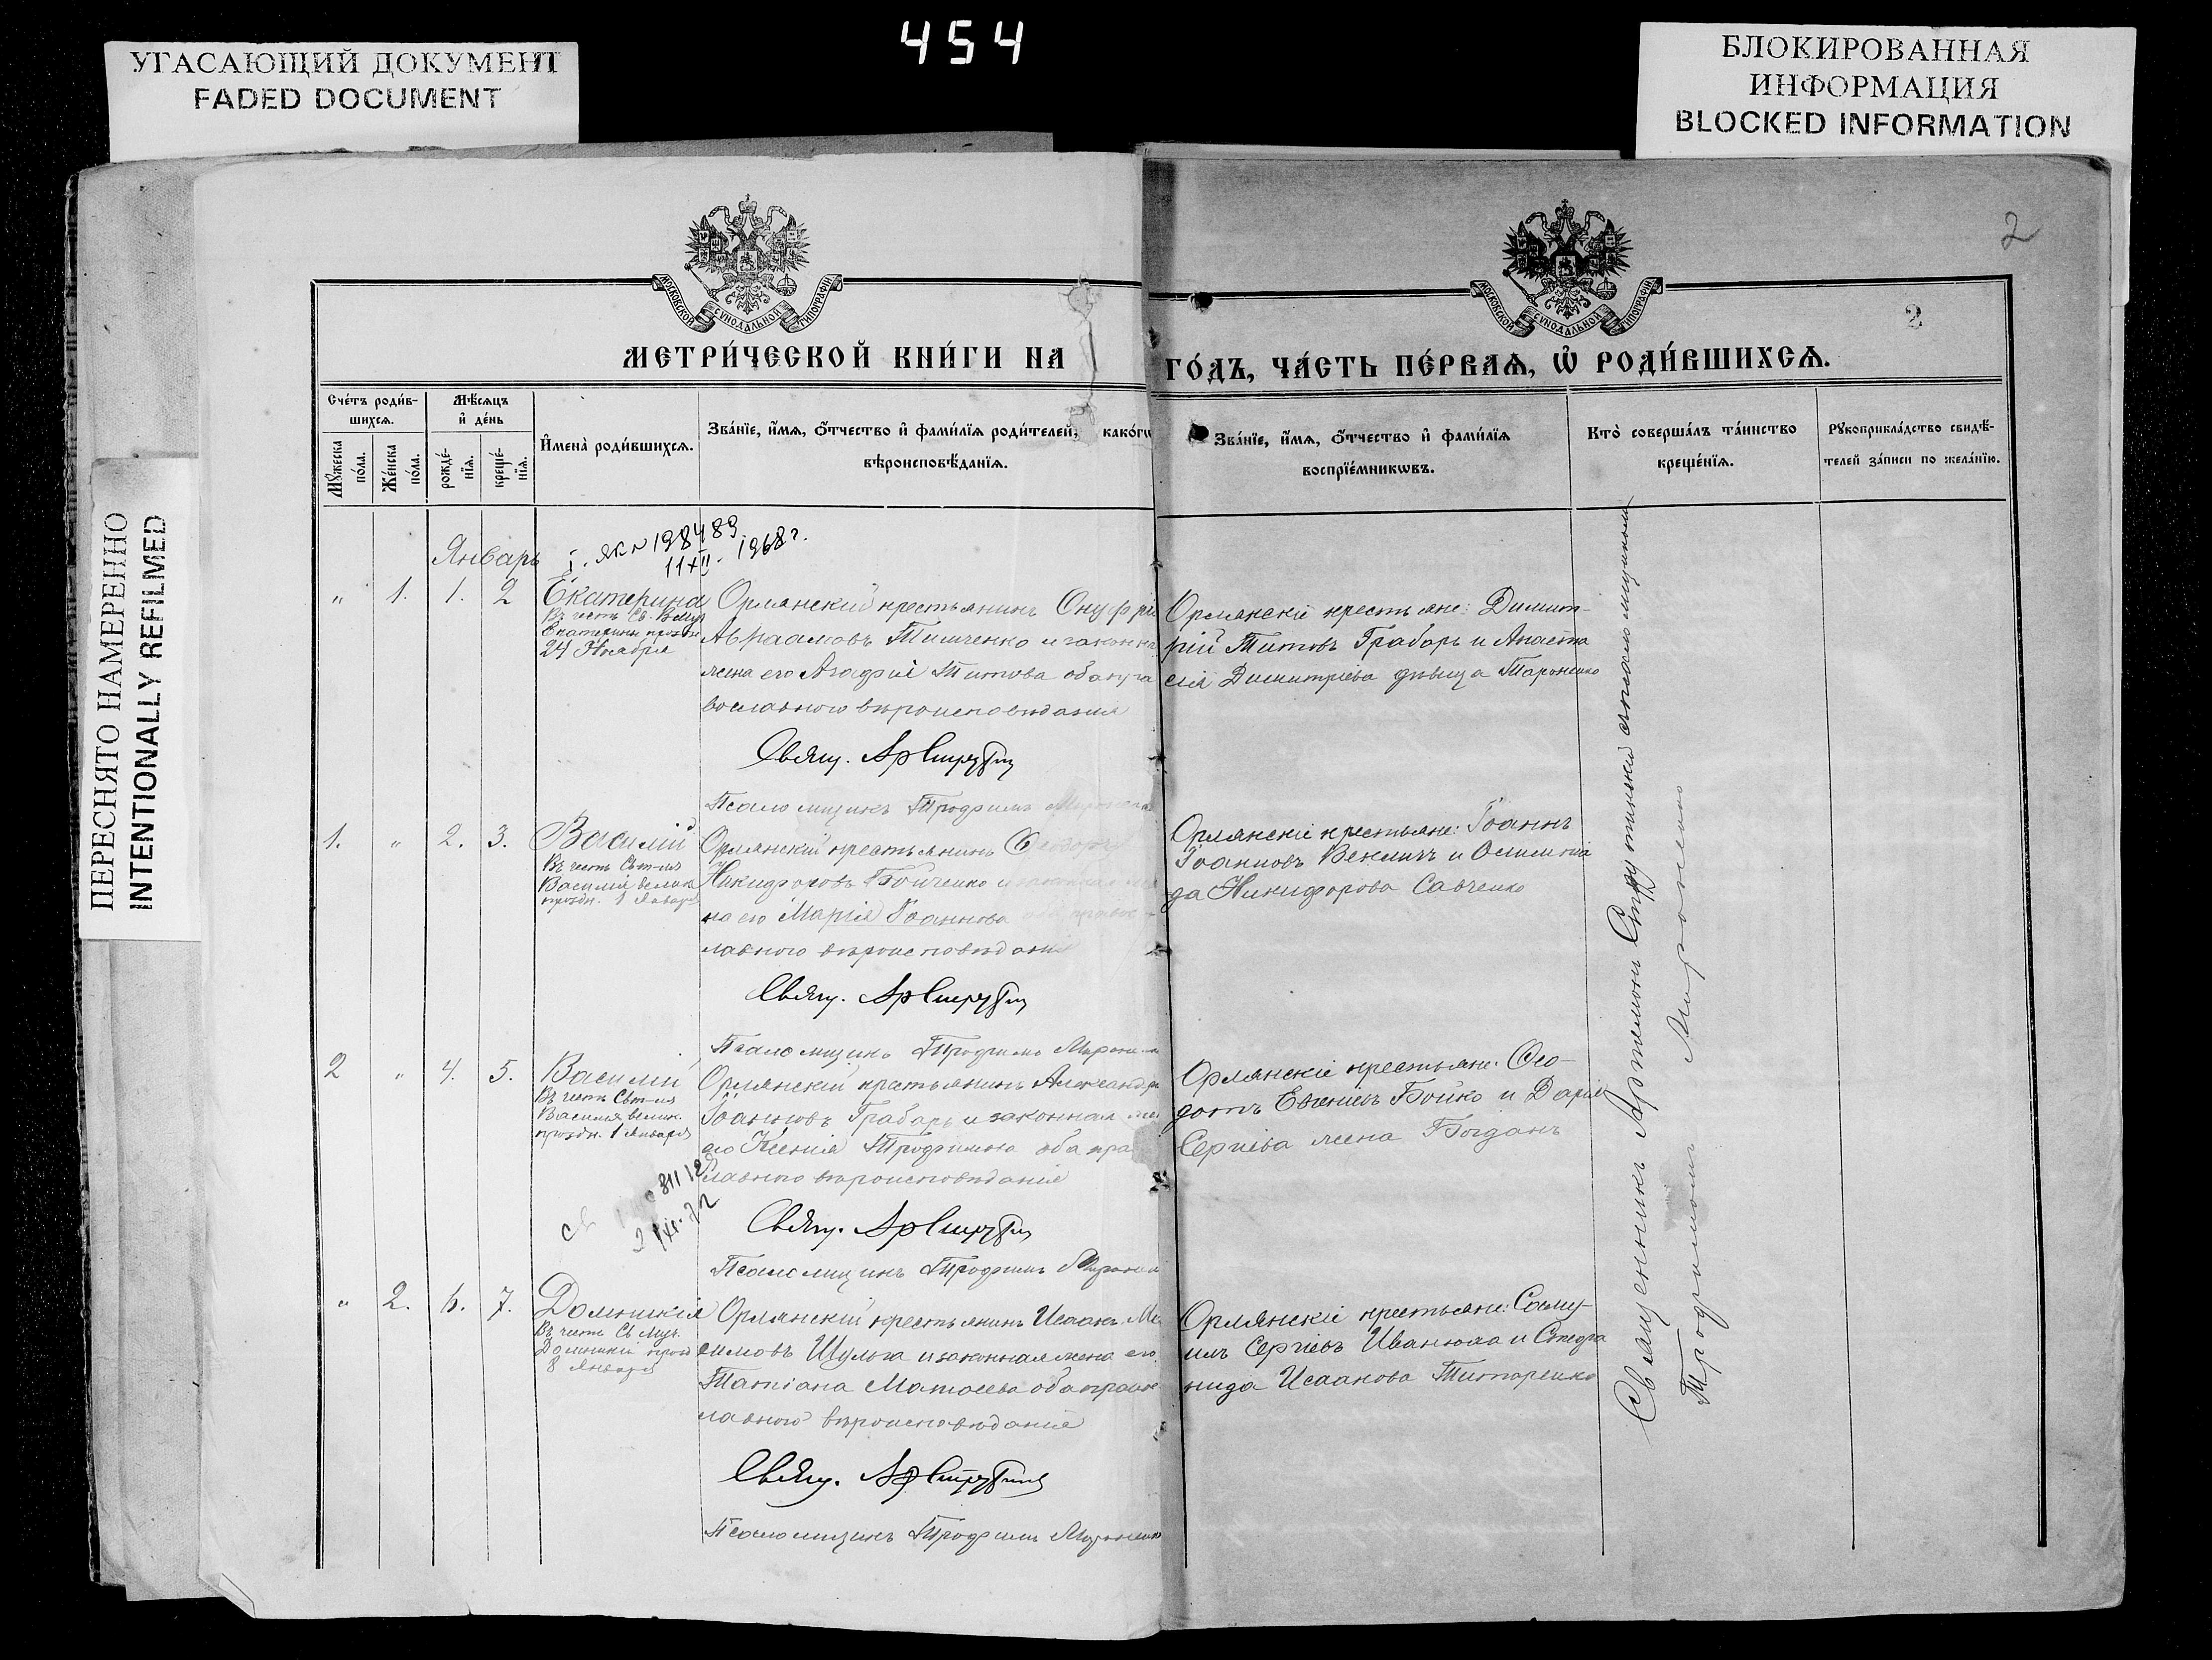 454
УГАСАЮЩИЙ ДОКУМЕНТ
FADED DOCUMENT
БЛОКИРОВАННАЯ
ИНФОРМАЦИЯ
BLOCKED INFORMATION
ПЕРЕСНЯТО НАМЕРЕННО
INTENTIONALLY REFILMED
2
2
МОСКОВСКОЙ СѴНОДАЛЬНОЙ ТИПОГРАФІИ
МОСКОВСКОЙ СѴНОДАЛЬНОЙ ТИПОГРАФІИ
МЕТРИ́ЧЕСКОЙ КНИ́ГИ НА
ГО́ДЪ, ЧА́СТЬ ПЕ́РВАѦ, Ѡ҆ РОДИ́ВШИХСѦ.
Сче́тъ роди́в-
шихсѧ.
Мꙋ́жеска
по́ла.
Же́нска
по́ла.
Мѣ́сяцъ
и҆ де́нь
рожде́-
нїѧ.
креще́-
нїѧ.
И҆мена̀ роди́вшихсѧ.
Зва́нїе, и҆́мѧ, ѻ҆́тчество и҆ фами́лїѧ роди́телей, како́гѡ
вѣроисповѣ́данїѧ.
Зва́нїе, и҆́мѧ, ѻ҆́тчество и҆ фами́лїѧ
воспрїе́мникѡвъ.
Кто̀ соверша́лъ та́инство
креще́нїѧ.
Рꙋкоприкла́дство свидѣ́-
телей за́писи по жела́нїю.
Январь
I. ЯК № 198489
11 XII. 1968 г.
" 1. 1. 2
Екатерина
Въ честь Св. Вмуч
Екатерины праздн
24 Ноября
Орлянскій крестьянинъ Онуфрій
Авраамовъ Тимченко и законн
жена его Агафія Титова оба пра
вославного вѣроисповѣданія
Свящ. Ар Струти
Псаломщикъ Трофимъ Мироненко
Орлянскіе крестьяне: Димит-
рій Титовъ Грабарь и Анаста
сія Димитріева дѣвица
1. " 2. 3.
Василій
Въ честь Свт-ля
Василія велик
праздн. 1 Января
Орлянскій крестьянинъ
Никифоровъ Бойченко и законная же
на его Марія Іоаннова оба правос-
лавного вѣроисповѣданія
Свящ. Ар Струти
Псаломщикъ Трофимъ Мироне
Орлянскіе крестьяне: Іоаннъ
Іоанновъ Веклич и
да Никифорова Савченко
2 " 4. 5.
Василій
Въ честь Свт-ля
Василія велик.
праздн. 1 Января
Орлянскій крестьянинъ Александръ
Іоанновъ Грабарь и законная же
его Ксенія Трофимова оба пра
славного вѣроисповѣданія
Свящ. Ар Струти
Псаломщикъ Трофимъ Мироне
Орлянскіе крестьяне: Ѳео-
дотъ Евгеніевъ Бойко и Дарія
Сергіева жена Богданъ
" 2. 6. 7.
Домникія
Въ честь Св Муч.
Домникіи празд
8 Января
Орлянскій крестьянинъ Исаакъ Ма
симовъ Шульга и законная жена его
Татіана Матѳеева оба правос
лавного вѣроисповѣданія
Свящ. Ар Струти
Псаломщикъ Трофимъ Мироненко
Орлянскіе крестьяне: Саму-
илъ Сергіевъ Иванюха и Стефа
нида Исаакова Титаренко
Священникъ Артемонъ Струтинскій съ псаломщикомъ
Трофимомъ Мироненко